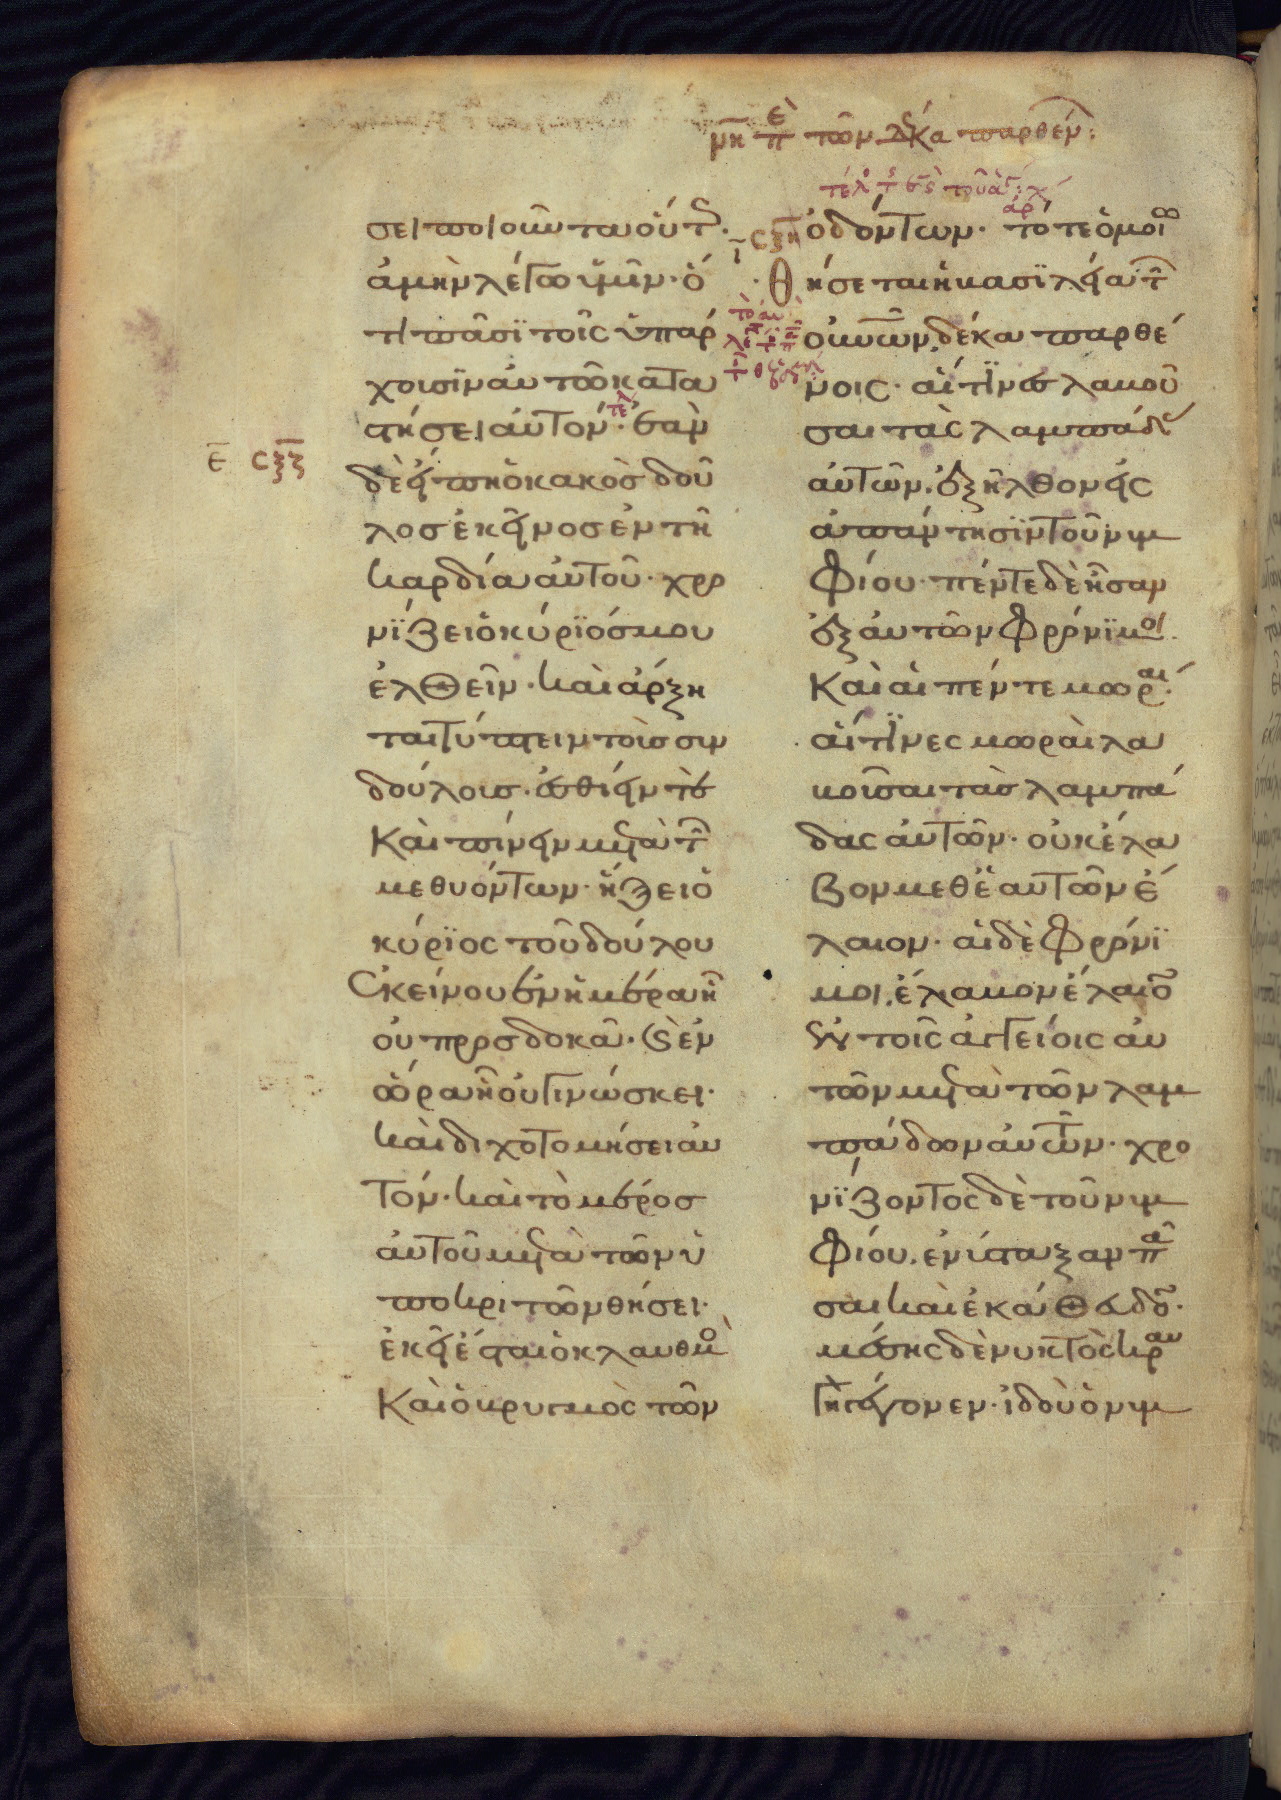 μη ε π τῶν δκα παρθέν:
σει ποιοῦντα οὕτ.
ἀμὴν λέγω ὑμῖν· ὅ
τι πᾶσϊ τοῖς ὑπάρ
χουσϊν αὐτοῦ κατα
στήσει αὐτόν· ἐὰν
δὲ εἴπη ὁ κακὸσ δοῦ
λοσ ἐκεῖνοσ ἐν τῆ
καρδία αὐτοῦ· χρο
νΐζει ὁ κύρϊόσ μου
ἐλθεῖν· καὶ ἄρξη
ται τύπτειν τοὺσ συν
δούλουσ· ἐσθίειν τὲ
καὶ πίνειν μετὰ τ
μεθυόντων· ἥξει ὁ
κύρϊος τοῦ δούλου
ἐκείνου ἐν ἡμέρα ἧ
οὐ προσδοκᾶ· κ ἐν
ὥρα ἧ οὐ γινώσκει·
καὶ διχοτομήσει αὐ
τόν· καὶ τὸ μέροσ
αὐτοῦ μετὰ τῶν ὑ
ποκριτῶν θήσει·
ἐκεῖ ἔσται ὁ κλαυθμὸ
καὶ ὁ βρυγμὸς τῶν
ε ςξζ
ςξη
ὀδόντων· τότε ὁμοιω
θήσεται ἡ βασϊλεία τ
οὐνῶν, δέκα παρθέ
νοις· αἵτϊνεσ λαβοῦ
σαι τὰς λαμπάδ
αὐτῶν, ἐξῆλθον εἰς
ἀπάντησϊν τοῦ νυμ
φίου· πέντε δὲ ἦσαν
ἐξ αὐτῶν φρόνϊμοι.
καὶ αἱ πέντε μωραί·
αἵτϊνες μωραὶ λα
βοῦσαι τὰσ λαμπά
δας αὐτῶν· οὐκ ἔλα
βον μεθ' ἑαυτῶν ἔ
λαιον· αἱ δὲ φρόνϊ
μοι, ἔλαβον ἔλαιο
ἐν τοῖς ἀγγείοις αὐ
τῶν μετὰ τῶν λαμ
πάδων αὐτῶν· χρο
νΐζοντος δὲ τοῦ νυμ
φίου, ἐνύσταξαν πᾶ
σαι καὶ ἐκάθευδο·
μέσης δὲ νυκτὸς κραυ
γὴ γέγονεν· ἰδοὺ ὁ νυμ